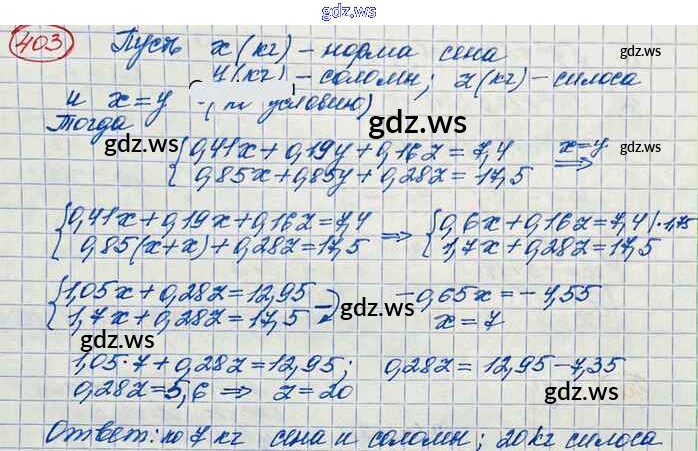 gdz.ws
gdz.ws
403 Пусть x (кг) – норма сена
y (кг) – соломы; z (кг) – силоса
gdz.ws
и x = y условию)
gdz.ws
Тогда
gdz.ws
{ 0,41x + 0,19y + 0,16z = 7,4 x = y
0,85x + 0,85y + 0,28z = 17,5 ⇒
gdz.ws
{ 0,41x + 0,19x + 0,16z = 7,4 ⇒ { 0,6x + 0,16z = 7,4 | · 1,75
0,85(x + x) + 0,28z = 17,5 1,7x + 0,28z = 17,5
gdz.ws
gdz.ws
{ 1,05x + 0,28z = 12,95 – -0,65x = -4,55
1,7x + 0,28z = 17,5 x = 7
gdz.ws
gdz.ws
1,05 · 7 + 0,28z = 12,95; 0,28z = 12,95 – 7,35
0,28z = 5,6 ⇒ z = 20
gdz.ws
gdz.ws
Ответ: по 7 кг сена и соломы; 20 кг силоса
gdz.ws
gdz.ws